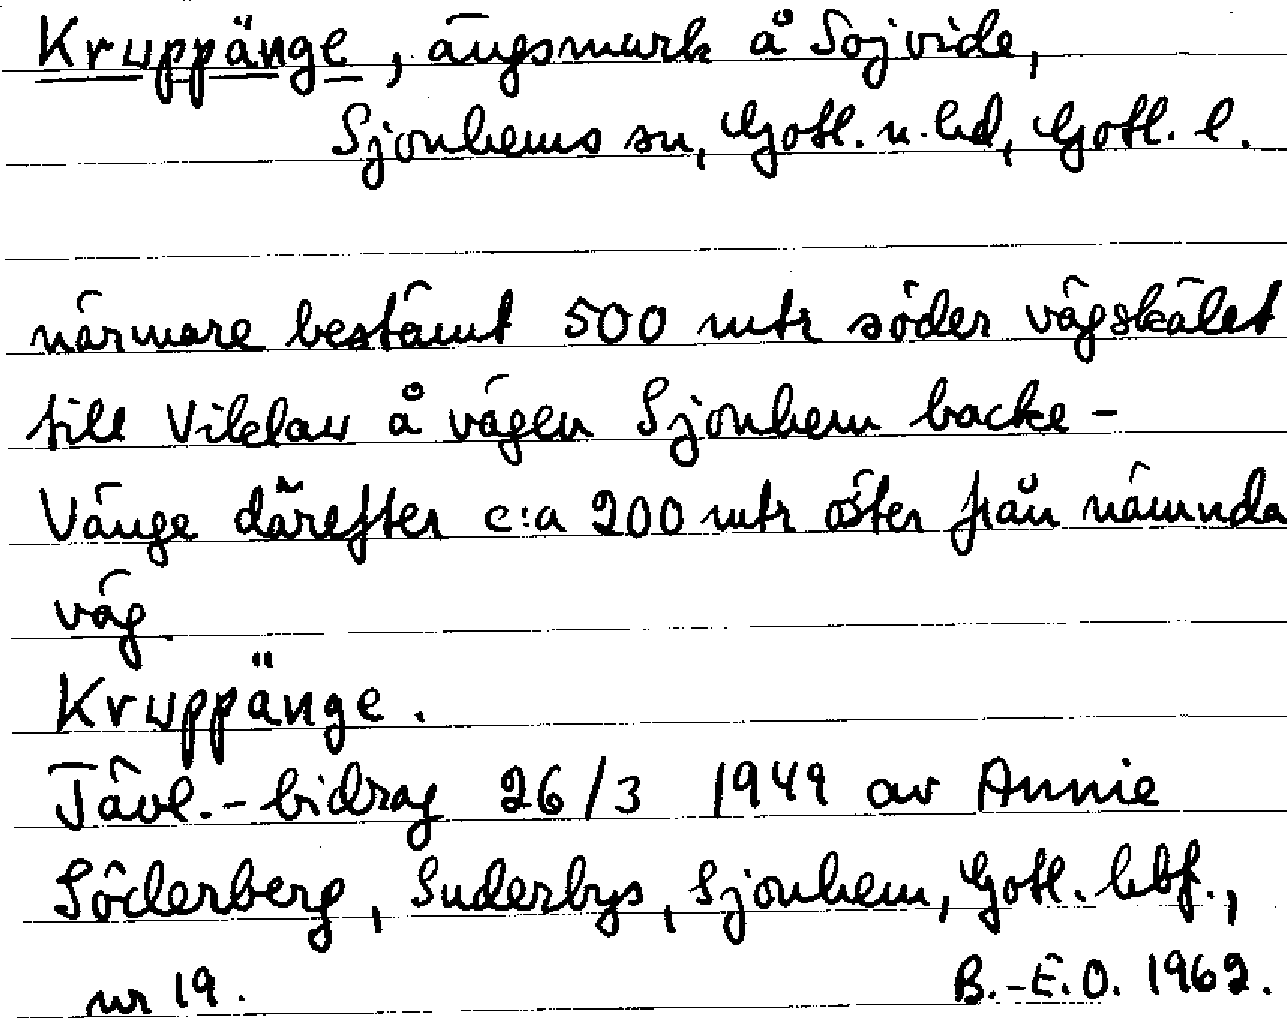 Kruppänge, ängsmark å Sojvide,
Sjonhems sn, Gotl. n. hd, Gotl. l.
närmare bestämt 500 mtr söder vägskälet
till Viklau å vägen Sjonhem backe -
Vänge därefter c:a 200 mtr öster från nämnda
väg
Kruppänge.
Tävl.-bidrag 26/3 1949 av Annie
Söderberg, Suderbys, Sjonhem, Gotl. hbf.,
nr 19. B.-E.O. 1962.